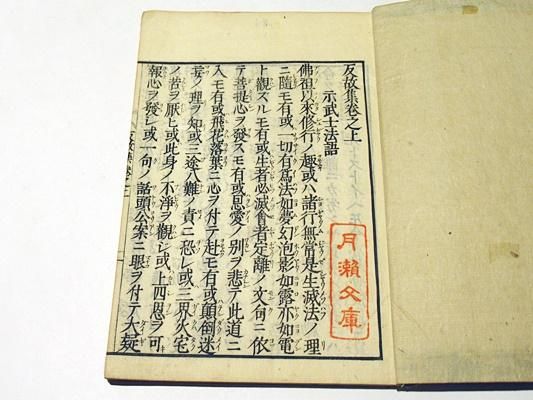 反故集卷之上
示武士法語
佛祖以來修行ノ趣或ハ諸行無常是生滅法ノ理
ニ隨モ有或一切有爲法如夢幻泡影如露亦如電
ト觀スルモ有或生者必滅會者定離ノ文句ニ依
テ菩提心ヲ發スモ有或恩愛ノ別ヲ悲テ此道ニ
入モ有或飛花落葉ニ心ヲ付テ起モ有或顛倒迷
妄ノ理ヲ知或三途八難ノ責ニ恐レ或三界火宅
ノ苦ヲ厭ヒ或此身ノ不淨ヲ觀シ或上四恩ヲ可
報心ヲ發シ或一句ノ話頭公案ニ眼ヲ付テ大疑
月瀬文庫